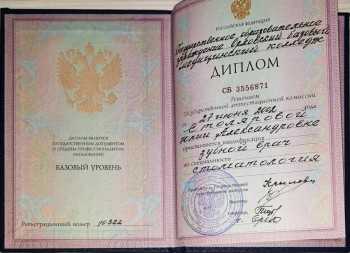 ДИПЛОМ ЯВЛЯЕТСЯ
ГОСУДАРСТВЕННЫМ ДОКУМЕНТОМ
О СРЕДНЕМ ПРОФЕССИОНАЛЬНОМ
ОБРАЗОВАНИИ
БАЗОВЫЙ УРОВЕНЬ
Регистрационный номер 322
РОССИЙСКАЯ ФЕДЕРАЦИЯ
Государственное образовательное
учреждение Орловский базовый
медицинский колледж
ДИПЛОМ
СБ 3556871
Решением
Государственной аттестационной комиссии
от 27 июня 2002 года
Столяровой
Александровне
присвоена квалификация
зубной врач
по специальности
стоматология